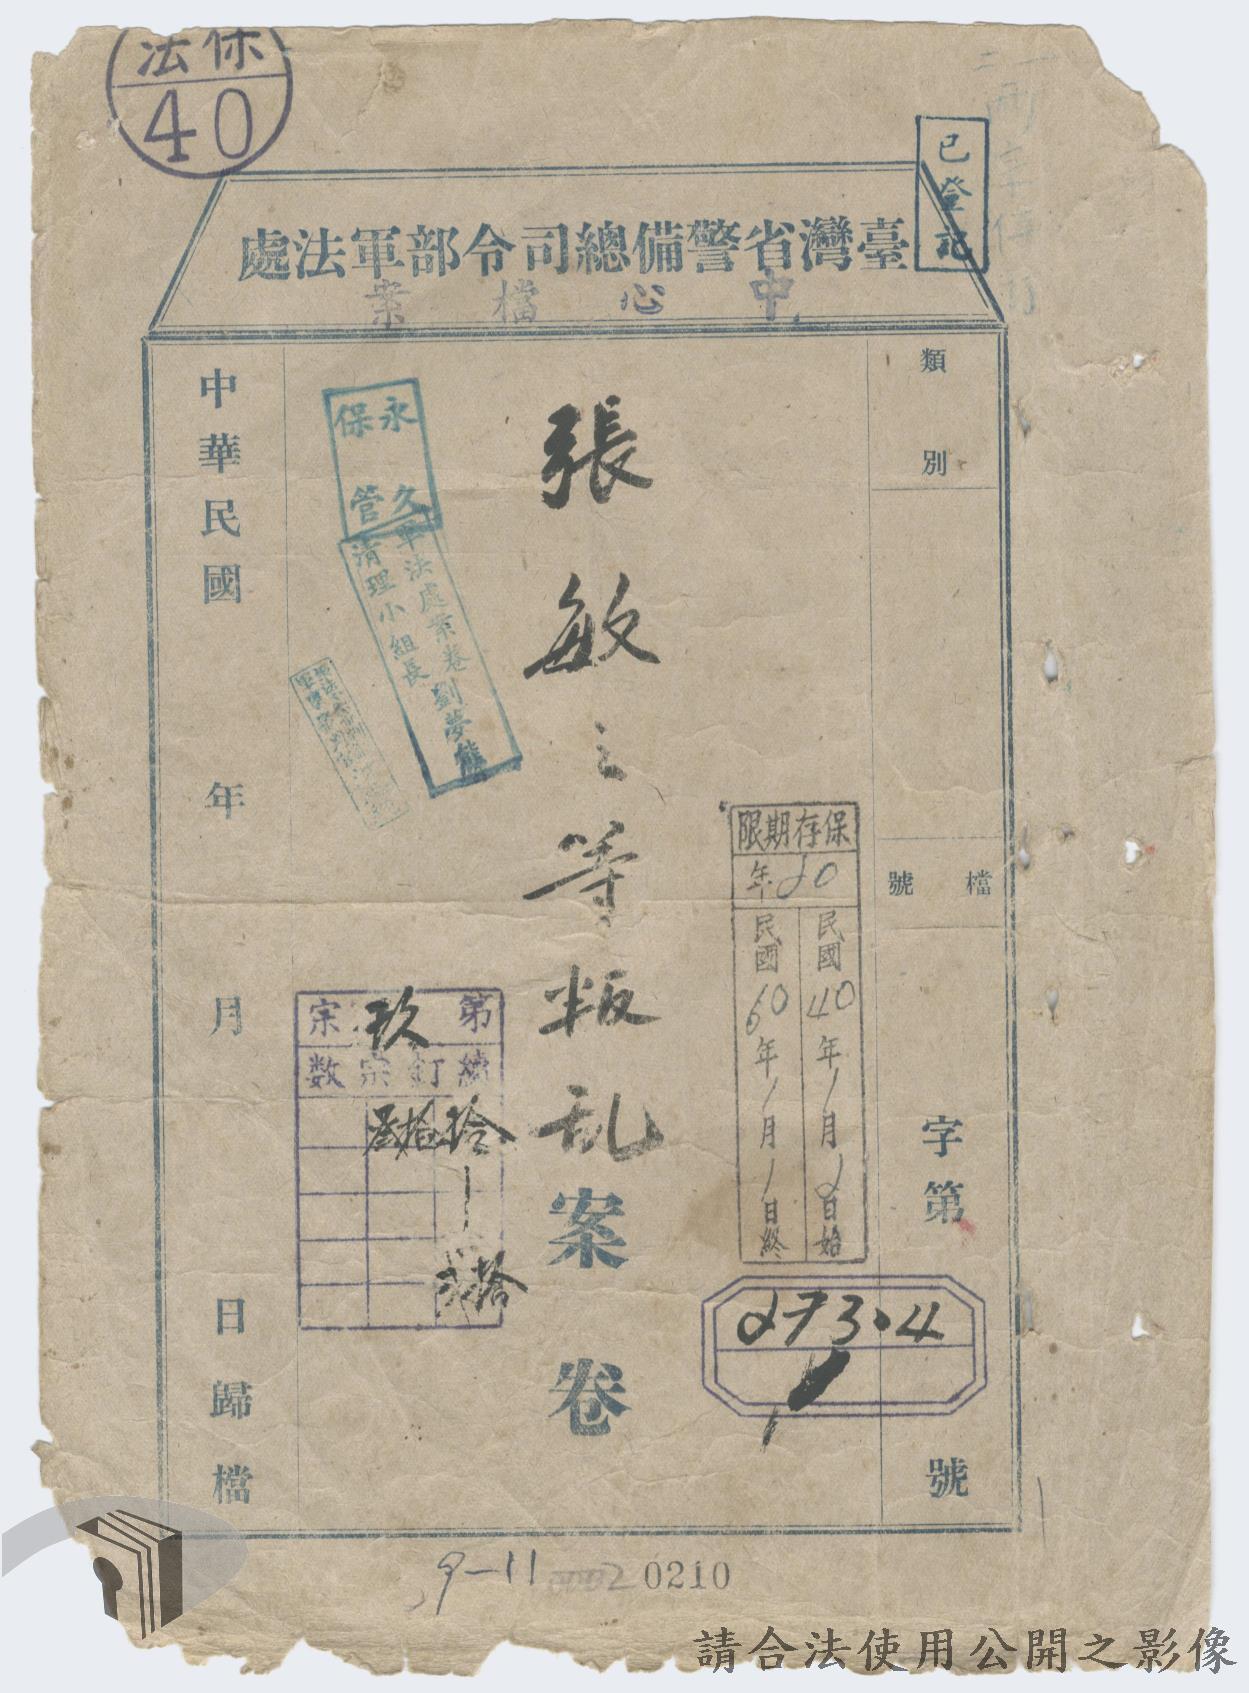 保法
40
已登記
臺灣省警備總司令部軍法處
中心檔案
類別
檔號
字第
號
273.4
1
保存期限
20年
民國40年1月2日始
民國60年1月1日終
張敏之等叛乱案卷
永久保管
軍法處案卷清理小組長劉夢熊
第玖宗
續訂宗數
拾
拾貳
叁拾
中華民國 年 月 日歸檔
9-11
0210
請合法使用公開之影像